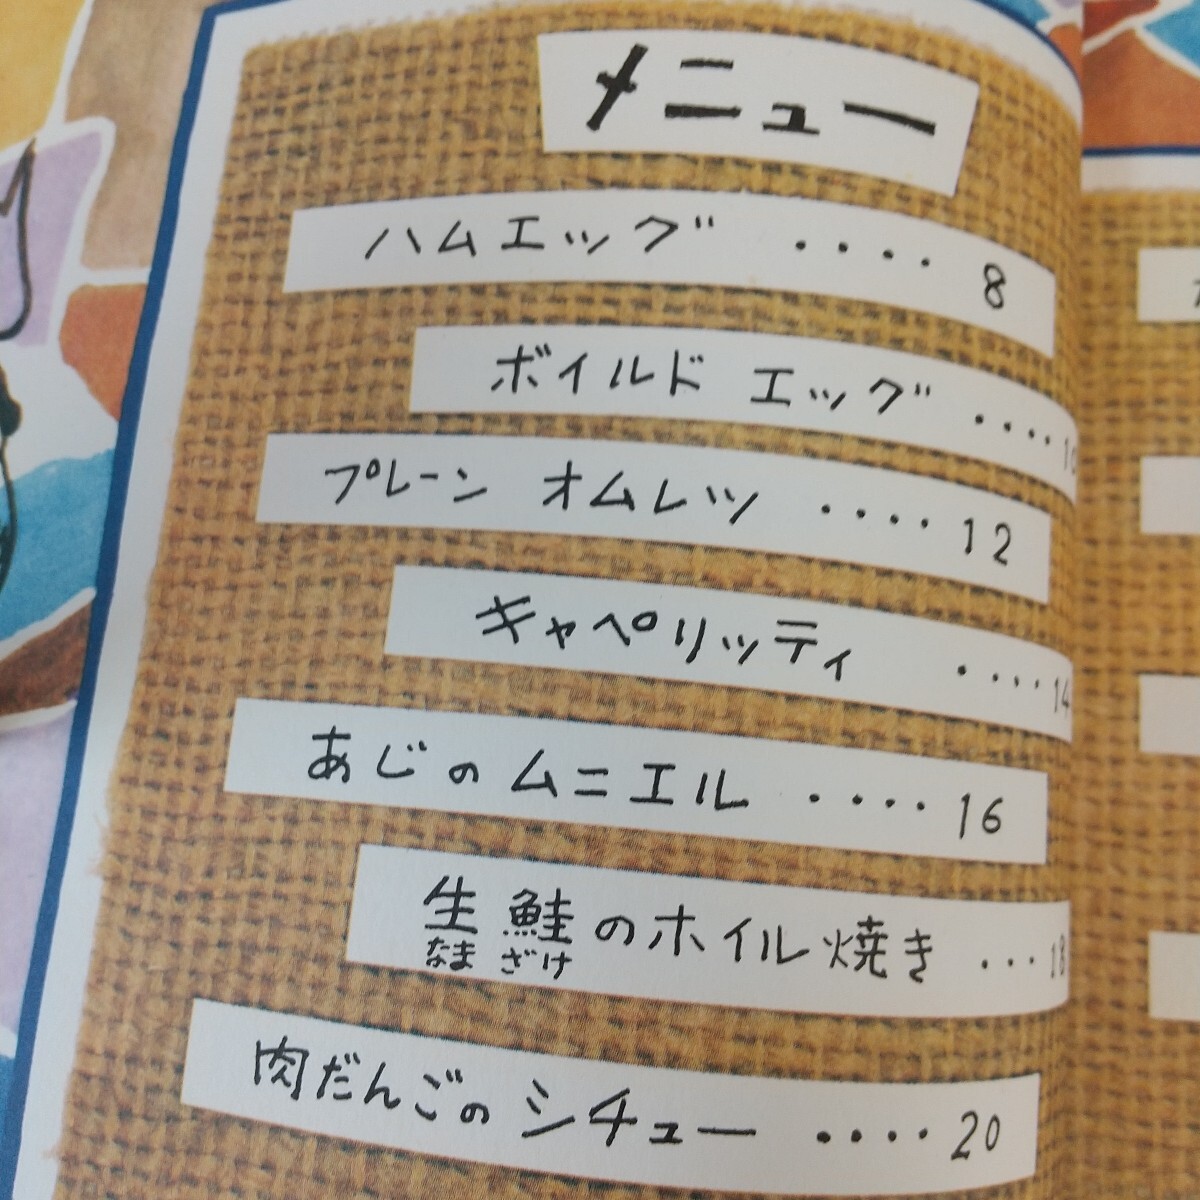 メニュー
ハムエッグ ････ 8
ボイルド エッグ ････ 10
プレーン オムレツ ････ 12
キャペリッティ ････ 14
あじのムニエル ････ 16
生鮭のホイル焼き ･･･ 18
なま ざけ
肉だんごのシチュー ････ 20